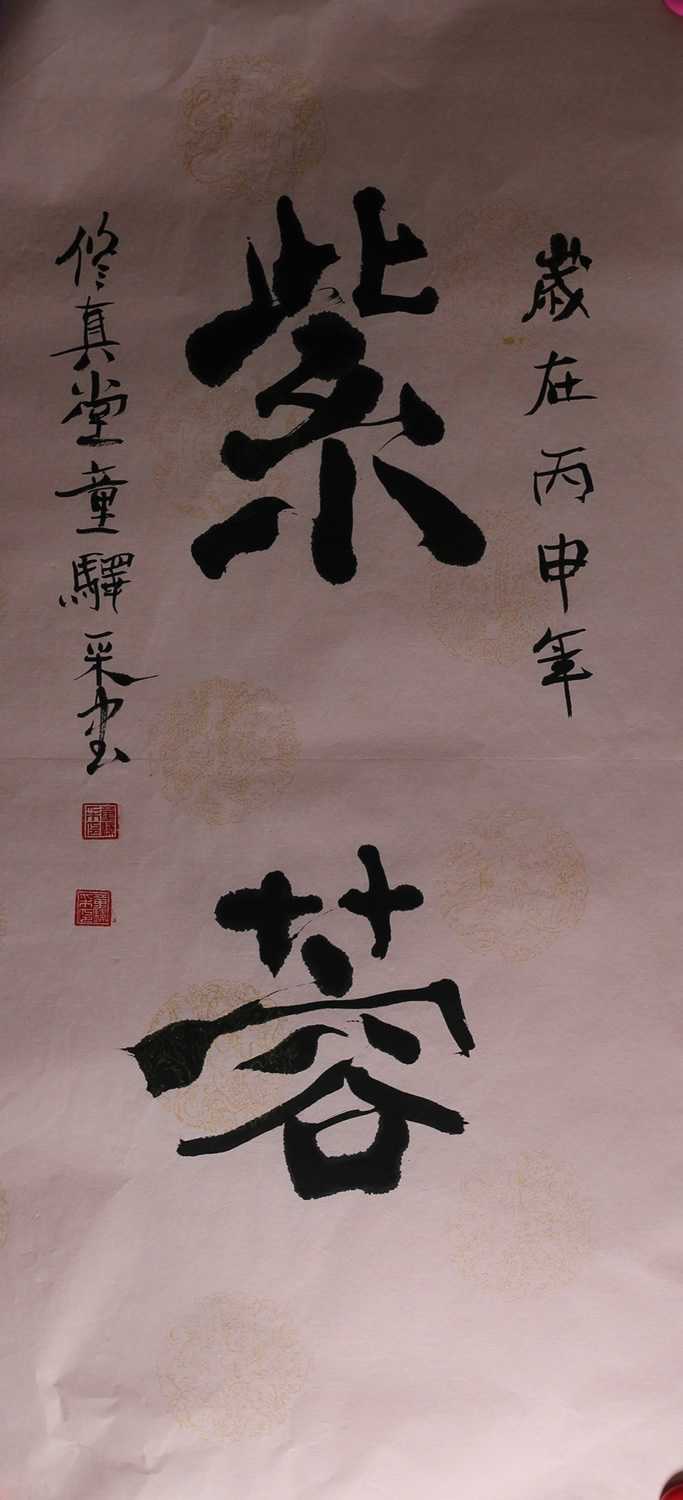 歲在丙申年
紫蓉
修真堂童驛采書